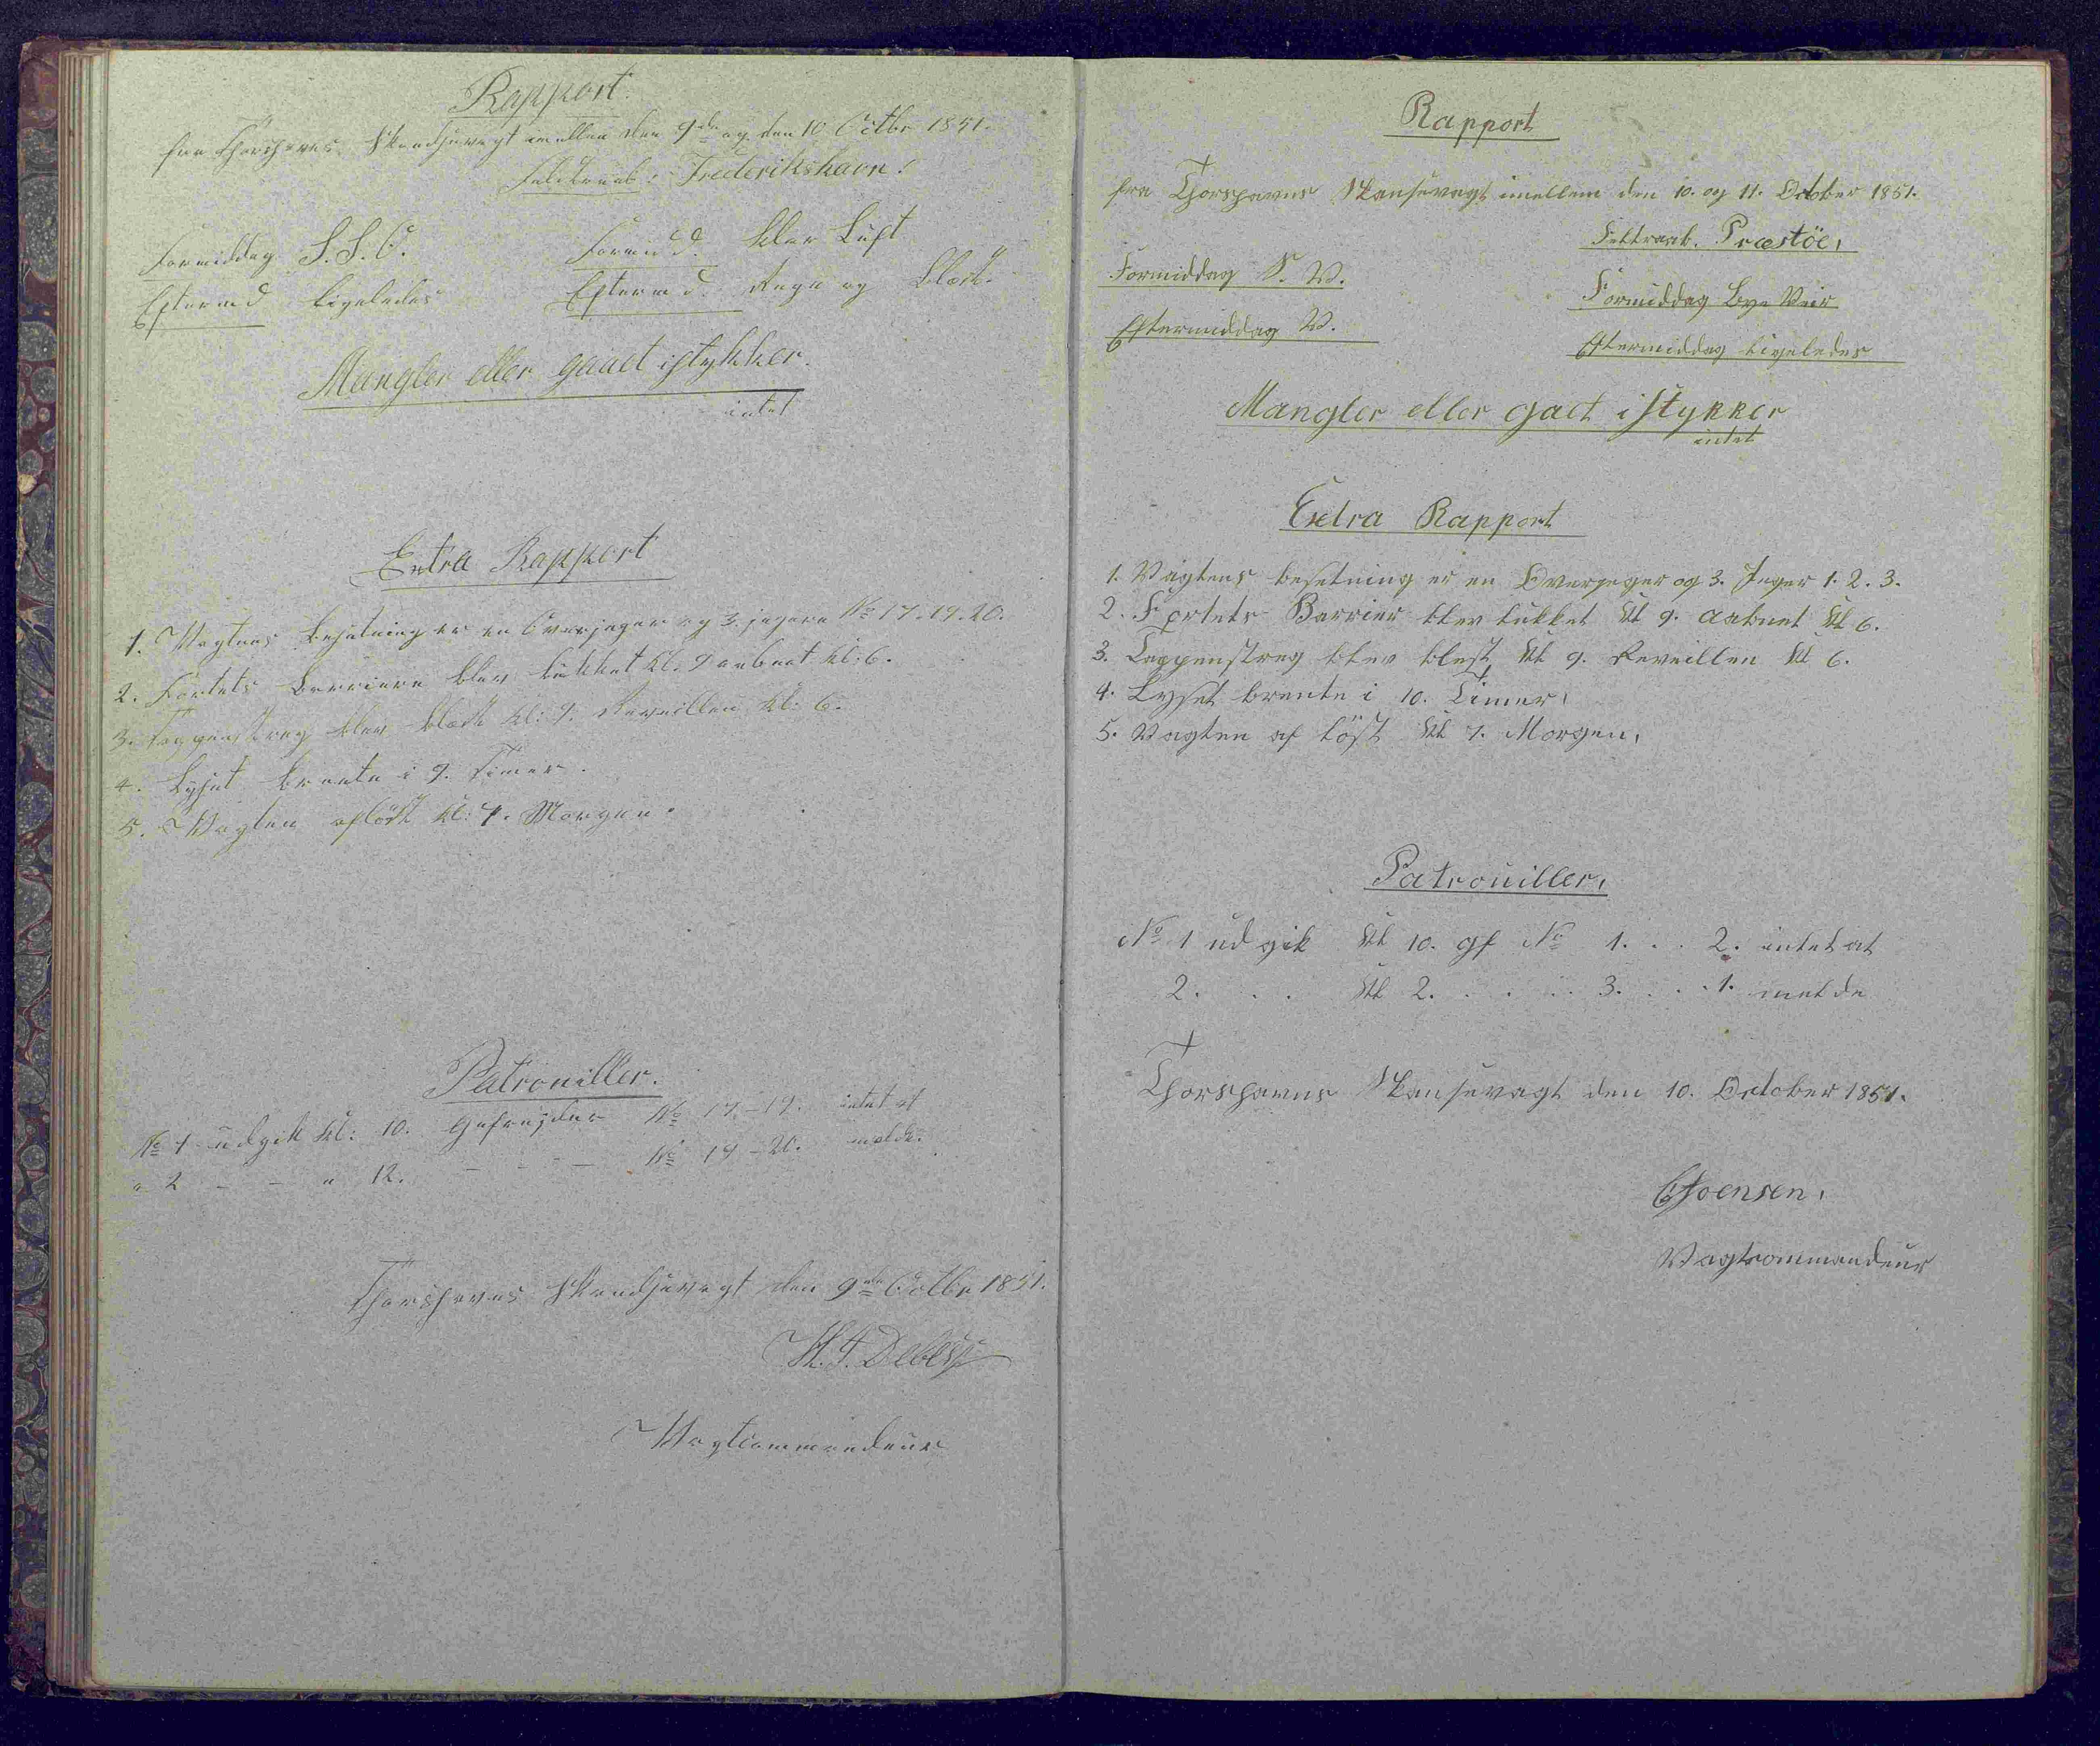 Rapport.
fra Thorshavns Skandsevagt imellem den 9de og den 10 Octbr 1851.
Feldtraab: Frederikshavn!
Formiddag S.S.O. Formidd. klar Luft
Eftermd ligeledes Eftermd. Regn og Blæst.
Mangler eller gaaet istykker.
intet
Extra Rapport
1. Vagtens besætning er en Overjæger og 3 jægere No 17. 19. 20.
2. Fortets Barriere blev lukket kl. 9 aabnet kl: 6.
3. Tappenstreg blev blæst kl: 9. Reveillen kl: 6.
4. Lyset brænte i 9. Timer.
5. Vagten afløst kl: 7. Morgen.
Patrouiller.
No 1 udgik kl: 10. Gefreider No 17-19. intet at
" 2 - - " 12. - - - No 19-20. melde.
Thorshavns Skandsevagt den 9de Octbr 1851.
Debess
Vagtcommandeur
Rapport
fra Thorshavns Skansevagt imellem den 10. og 11. October 1851.
Feltraab. Præstöe,
Formiddag S. W.
Formiddag Bye Veir
Eftermiddag W.
Eftermiddag ligeledes
Mangler eller gaet istykker
intet
Extra Rapport
1. Vagtens besetning er en Overjeger og 3. Jeger 1. 2. 3.
2. Fortets Barrier blev lukket Kl 9. aabnet Kl 6.
3. Tappenstreg blev blest Kl 9. Reveillen Kl 6.
4. Lyset brente i 10. Timer,
5. Vagten af löst Kl 7. Morgen,
Patrouiller,
No 1 udgik Kl 10. gf No 1. . . 2. intet at
2. . . Kl 2. . . . . 3. . . . 1. melde
Thorshavns Skansevagt den 10. October 1851.
Joensen,
Vagtcommandeur